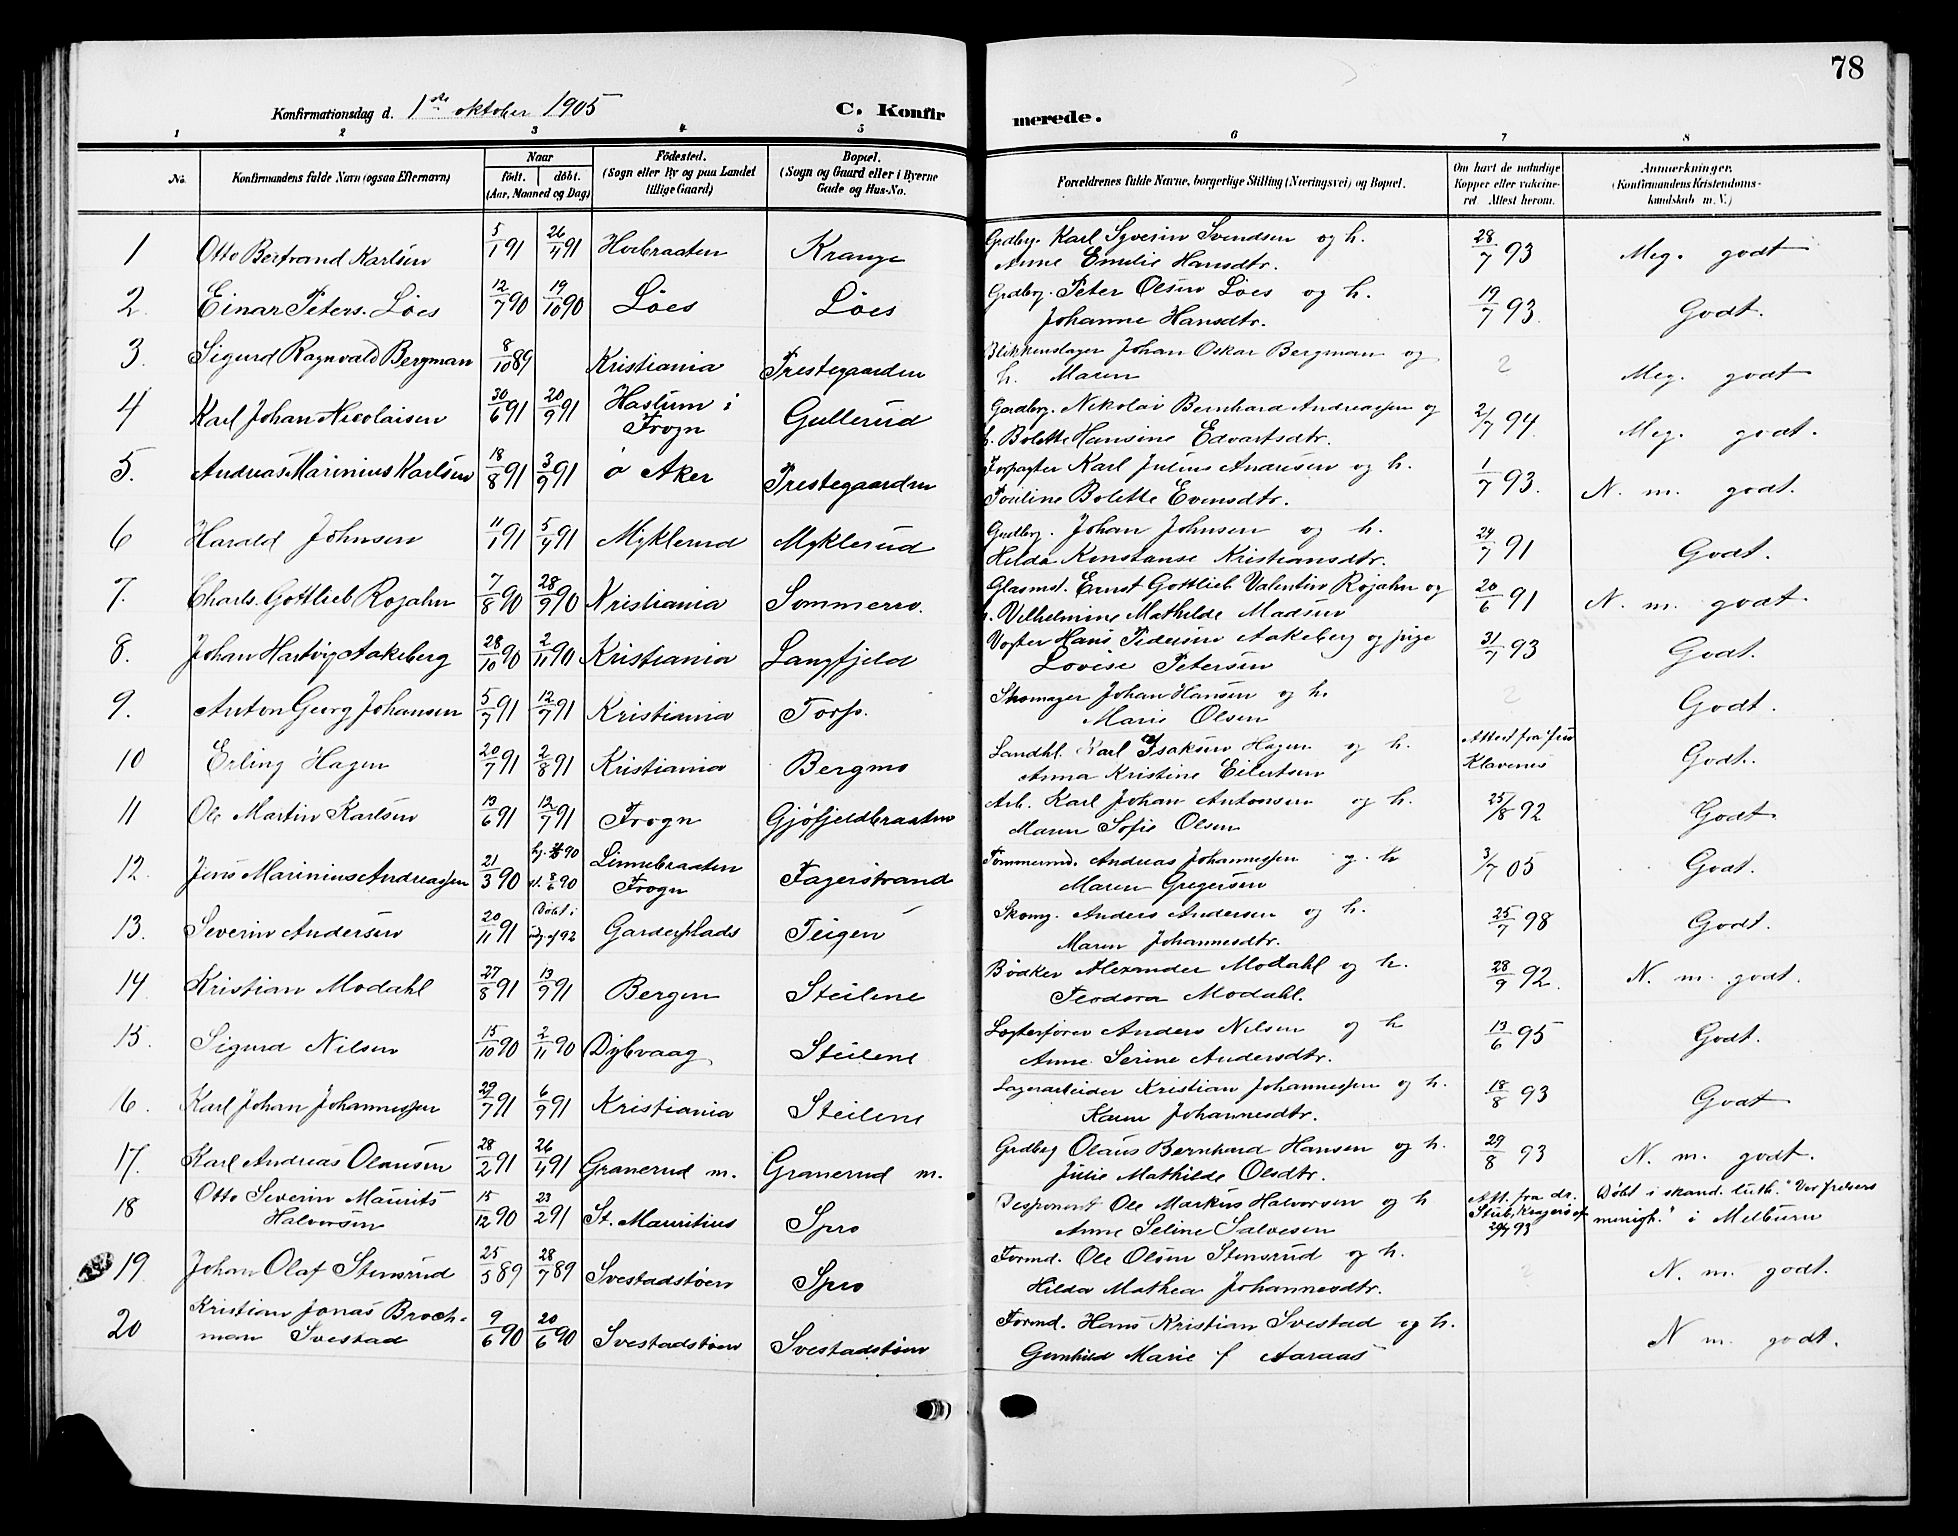 78
Konfirmationsdag d. 1ste oktober 1905 C. Konfirmerede.
1 2 3 4 5 6 7 8
No. Konfirmandens fulde Navn (ogsaa Efternavn) Naar födt. döbt. (Aar, Maaned og Dag) Födested. (Sogn eller By og paa Landet tillige Gaard) Bopæl. (Sogn og Gaard eller i Byerne Gade og Hus-No. Forældrenes fulde Navne, borgerlige Stilling (Næringsvei) og Bopæl. Om havt de naturlige Kopper eller vakcineret. Attest herom. Anmærkninger. (Konfirmandens Kristendomskundskab m. V.)
1 Otto Bertrand Karlsen 5/1 91 26/4 91 Hvebraaten Krange Grdbr. Karl Syverin Svendsen og h. 28/7 93 Meg. godt
Anne Emilie Hansdtr.
2. Einar Peters. Löes 12/7 90 19/10 90 Löes Löes Grdbr. Peter Olsen Löes og h. 19/7 93. Godt.
Johanne Hansdtr.
3. Sigurd Ragnvald Bergman 8/10 89 Kristiania Prestegaarden Blikkenslager Johan Oskar Bergman og ? Meg. godt
h. Maren
4 Karl Johan Nicolaisen 30/6 91 20/9 91 Haslum i Gullerud Gaardbr. Nikolai Bernhard Andreassen og 2/7 94. Meg. godt.
Frogn h. Bolette Hansine Edvartsdtr.
5. Andreas Marinius Karlsen 18/8 91 3/9 91 ö Aker Prestegaarden Forpagter Karl Julius Andresen og h. 1/7 93. N. m. godt.
Pouline Bolette Evensdtr.
6 Harald Johnsen 11/1 91 5/4 91 Myklerud Myklerud Grdbr. Johan Johnsen og h. 24/7 91 Godt.
Hilda Konstanse Kristiansdtr.
7. Charls. Gottlieb Rojahn 7/8 90 28/9 90 Kristiania Sommerro. Glasmd. Ernst Gottlieb Valentin Rojahn og 20/6 91 N. m. godt.
h. Vilhelmine Mathilde Madsen
8. Johan Hartvig Aakeberg 28/10 90 2/11 90 Kristiania Langfjeld Vogter Hans Pedersen Aakeberg og pige 31/7 93 Godt.
Lovise Petersen
9. Anton Georg Johansen 5/7 91 12/7 91 Kristiania Torp. Skomager Johan Hansen og h. ? Godt.
Marie Olsen
10 Erling Hagen 20/7 91 2/8 91 Kristiania Bergmo Landhl. Karl Isaksen Hagen og h. Attest fra fru Klavenes Godt.
Anna Kristine Eilertsen
11 Ole Martin Karlsen 13/6 91 12/7 91 Frogn Gjöfjeldbraaten Arb. Karl Johan Antonsen og h. 25/8 92 Godt
Maren Sofie Olsen
12. Jens Marinius Andreassen 21/3 90 8/6 90 Linnebraaten Fagerstrand Tömmermd. Andreas Johannessen og h 3/7 05 Godt.
Frogn Maren Gregersen
13. Severin Andersen 20/11 91 Döbt i 92 Garderplads Teigen Skomg. Anders Andersen og h. 25/7 98 Godt.
Maren Johannesdtr.
14 Kristian Modahl 27/8 91 13/9 91 Bergen Steilene Bödker Alexander Modahl og h. 28/9 92. N. m. godt.
Teodora Modahl.
15. Sigurd Nilsen 15/10 90 2/11 90 Dybvaag Steilene Lægterförer Anders Nilsen og h 13/6 95 Godt.
Anne Serine Andersdtr.
16. Karl Johan Johannessen 29/7 91 6/9 91 Kristiania Steilene Lagerarbeider Kristian Johannessen og h. 18/8 93 Godt
Karen Johannesdtr.
17. Karl Andreas Olausen 28/2 91 26/4 91 Granerud m. Granerud m. Grdbrg Olaus Bernhard Hansen og h. 29/8 93 N. m. godt.
Julie Mathilde Olsdtr.
18 Otto Severin Maurits 15/12 90 23/2 91 St. Mauritius Spro Disponent Ole Markus Halvorsen og h Att. fra dr. Stub, Kragerö af 93 Döbt i skand. luth. "Vor frelsers
Halvorsen Anne Seline Salvesen menigh." i Melburn
19 Johan Olaf Stensrud 25/5 89 28/7 89 Svestadstöen Spro Formd. Ole Olsen Stensrud og h. ? N. m. godt.
Hilda Mathea Johannesdtr.
20 Kristian Jonas Brochman Svestad 9/6 90 20/6 90 Svestadstöen Svestadstöen Formd. Hans Kristian Svestad og h. N m. godt.
Gunhild Marie f Aaraas